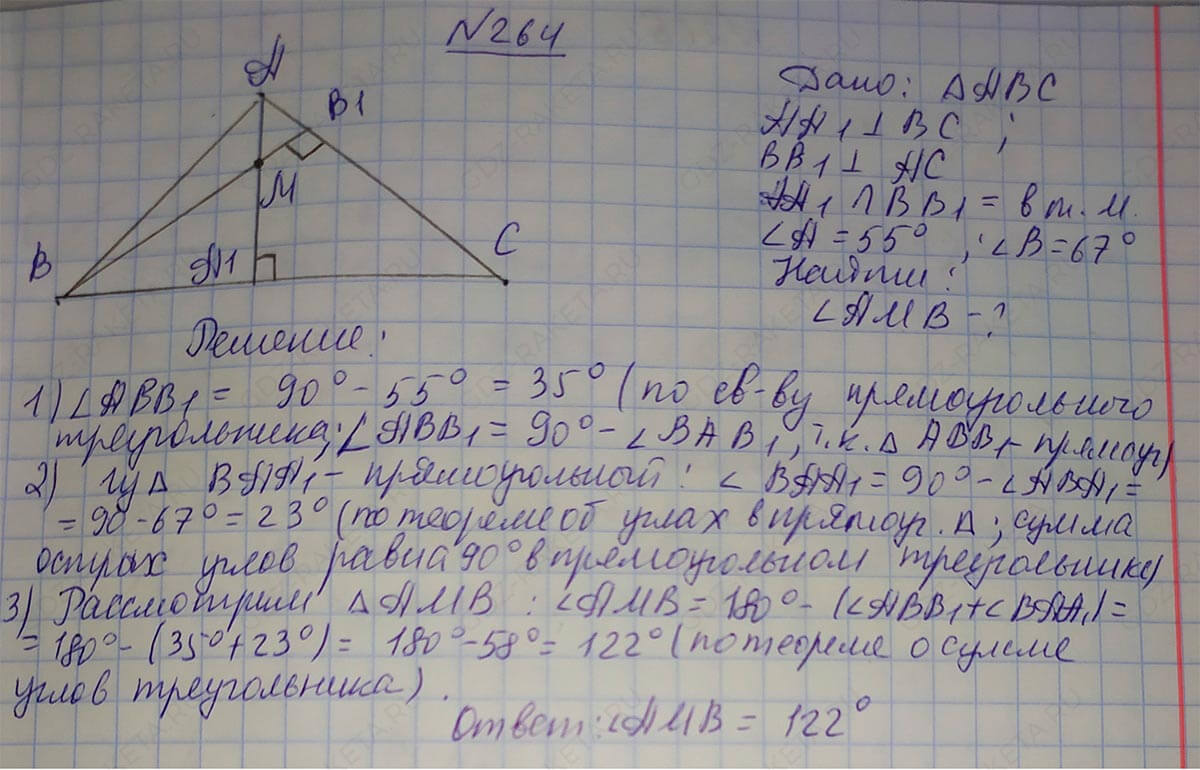 №264
A
B1
M
B
A1
C
Дано: △ABC
AA1 ⊥ BC ;
BB1 ⊥ AC
AA1 ∩ BB1 = в т. M.
∠A = 55° ; ∠B = 67°
Найти:
∠AMB - ?
Решение:
1) ∠ABB1 = 90° - 55° = 35° (по св-ву прямоугольного
треугольника; ∠ABB1 = 90° - ∠BAB1, т.к. △ ABB1 - прямоуг)
2) Из △ BAA1 - прямоугольный: ∠ BAA1 = 90° - ∠ABA1 =
= 90 - 67° = 23° (по теореме об углах в прямоуг. △; сумма
острых углов равна 90° в прямоугольном треугольнике)
3) Рассмотрим △ AMB : ∠AMB = 180° - (∠ABB1 + ∠BAA1) =
= 180° - (35° + 23°) = 180° - 58° = 122° (по теореме о сумме
углов треугольника).
Ответ: ∠AMB = 122°